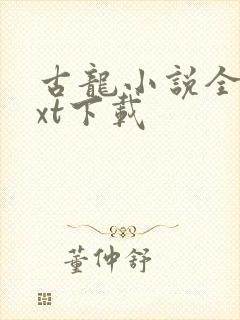 古龍小説全
xt下載
董仲舒